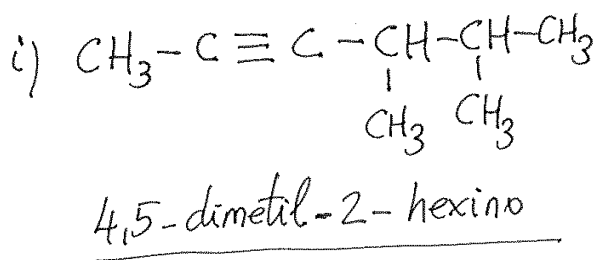 i) CH₃-C≡C-CH-CH-CH₃
CH₃ CH₃
4,5-dimetil-2-hexino